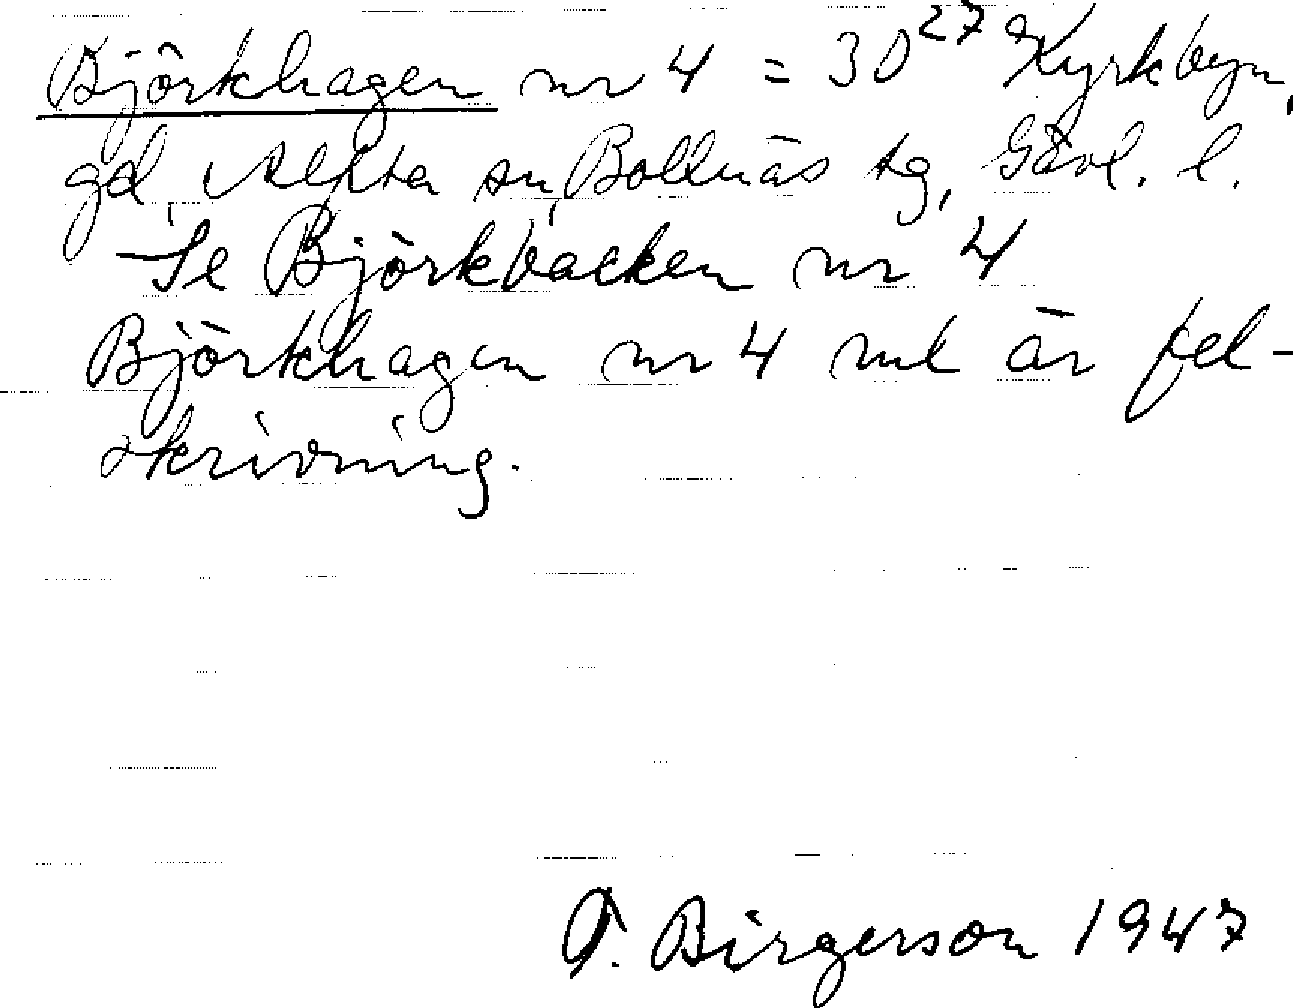 Björkhagen nr 4 = 30²⁷ Kyrkbyn,
gd, Alfta sn, Bollnäs tg, Gävl. l.
Se Björkbacken nr 4
Björkhagen nr 4 ml är fel-
skrivning.
T. Birgerson 1947